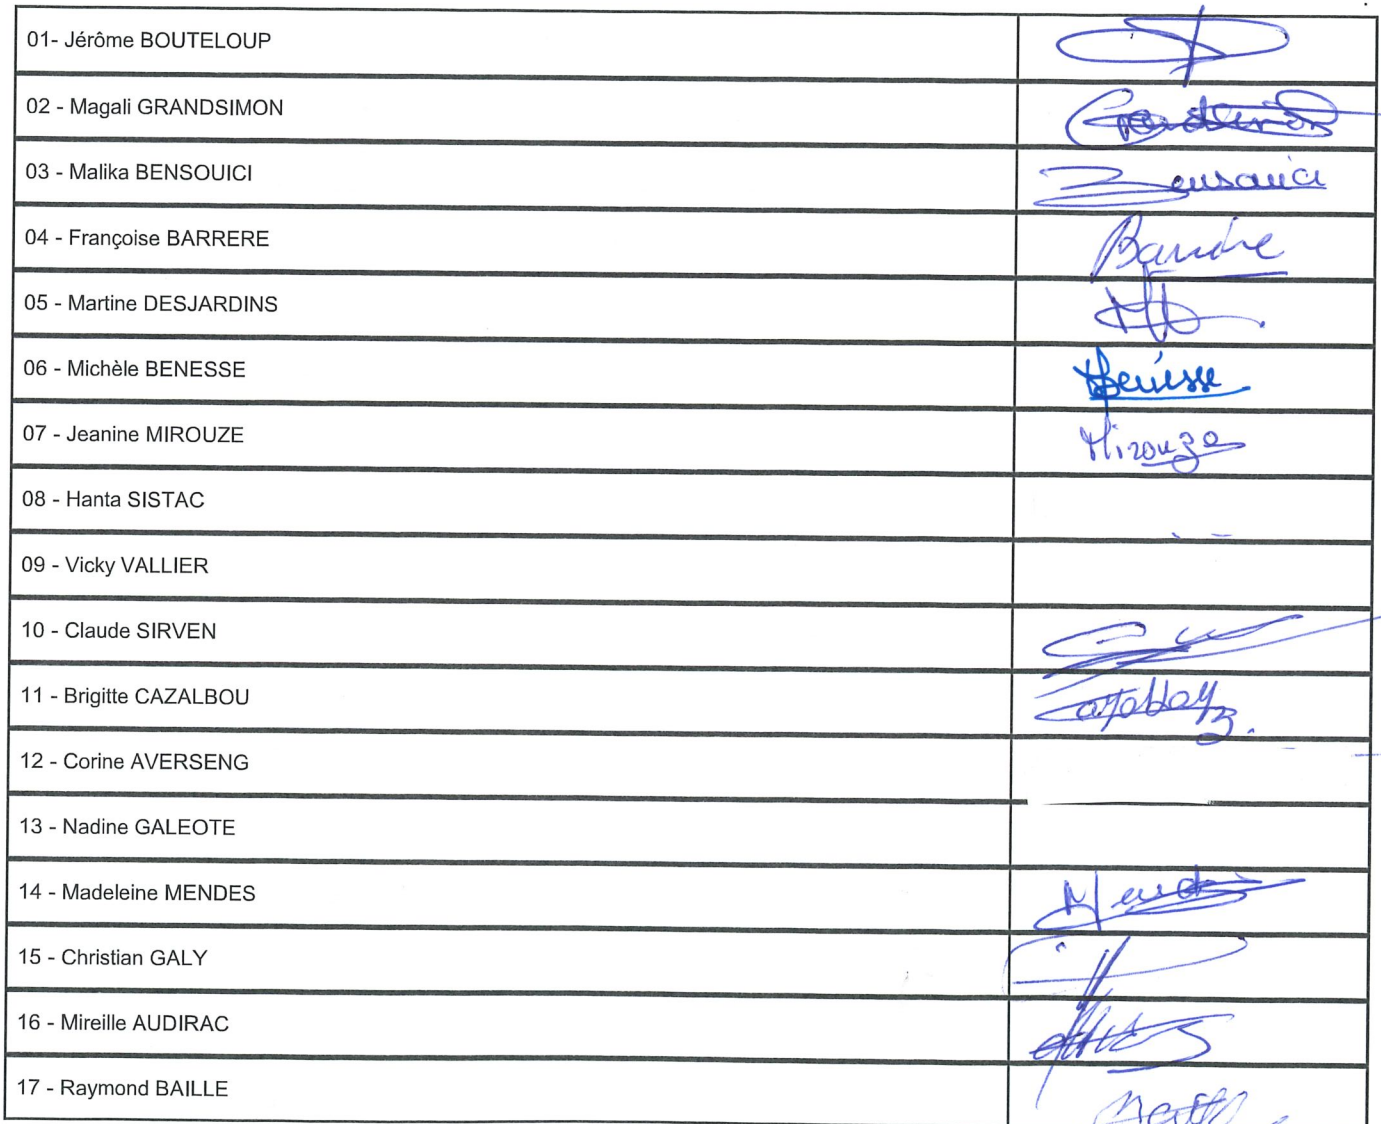 01- Jérôme BOUTELOUP
02 - Magali GRANDSIMON Grandsimon
03 - Malika BENSOUICI Bensouici
04 - Françoise BARRERE Barrère
05 - Martine DESJARDINS
06 - Michèle BENESSE Benesse
07 - Jeanine MIROUZE Mirouze
08 - Hanta SISTAC
09 - Vicky VALLIER
10 - Claude SIRVEN
11 - Brigitte CAZALBOU
12 - Corine AVERSENG
13 - Nadine GALEOTE
14 - Madeleine MENDES
15 - Christian GALY
16 - Mireille AUDIRAC
17 - Raymond BAILLE